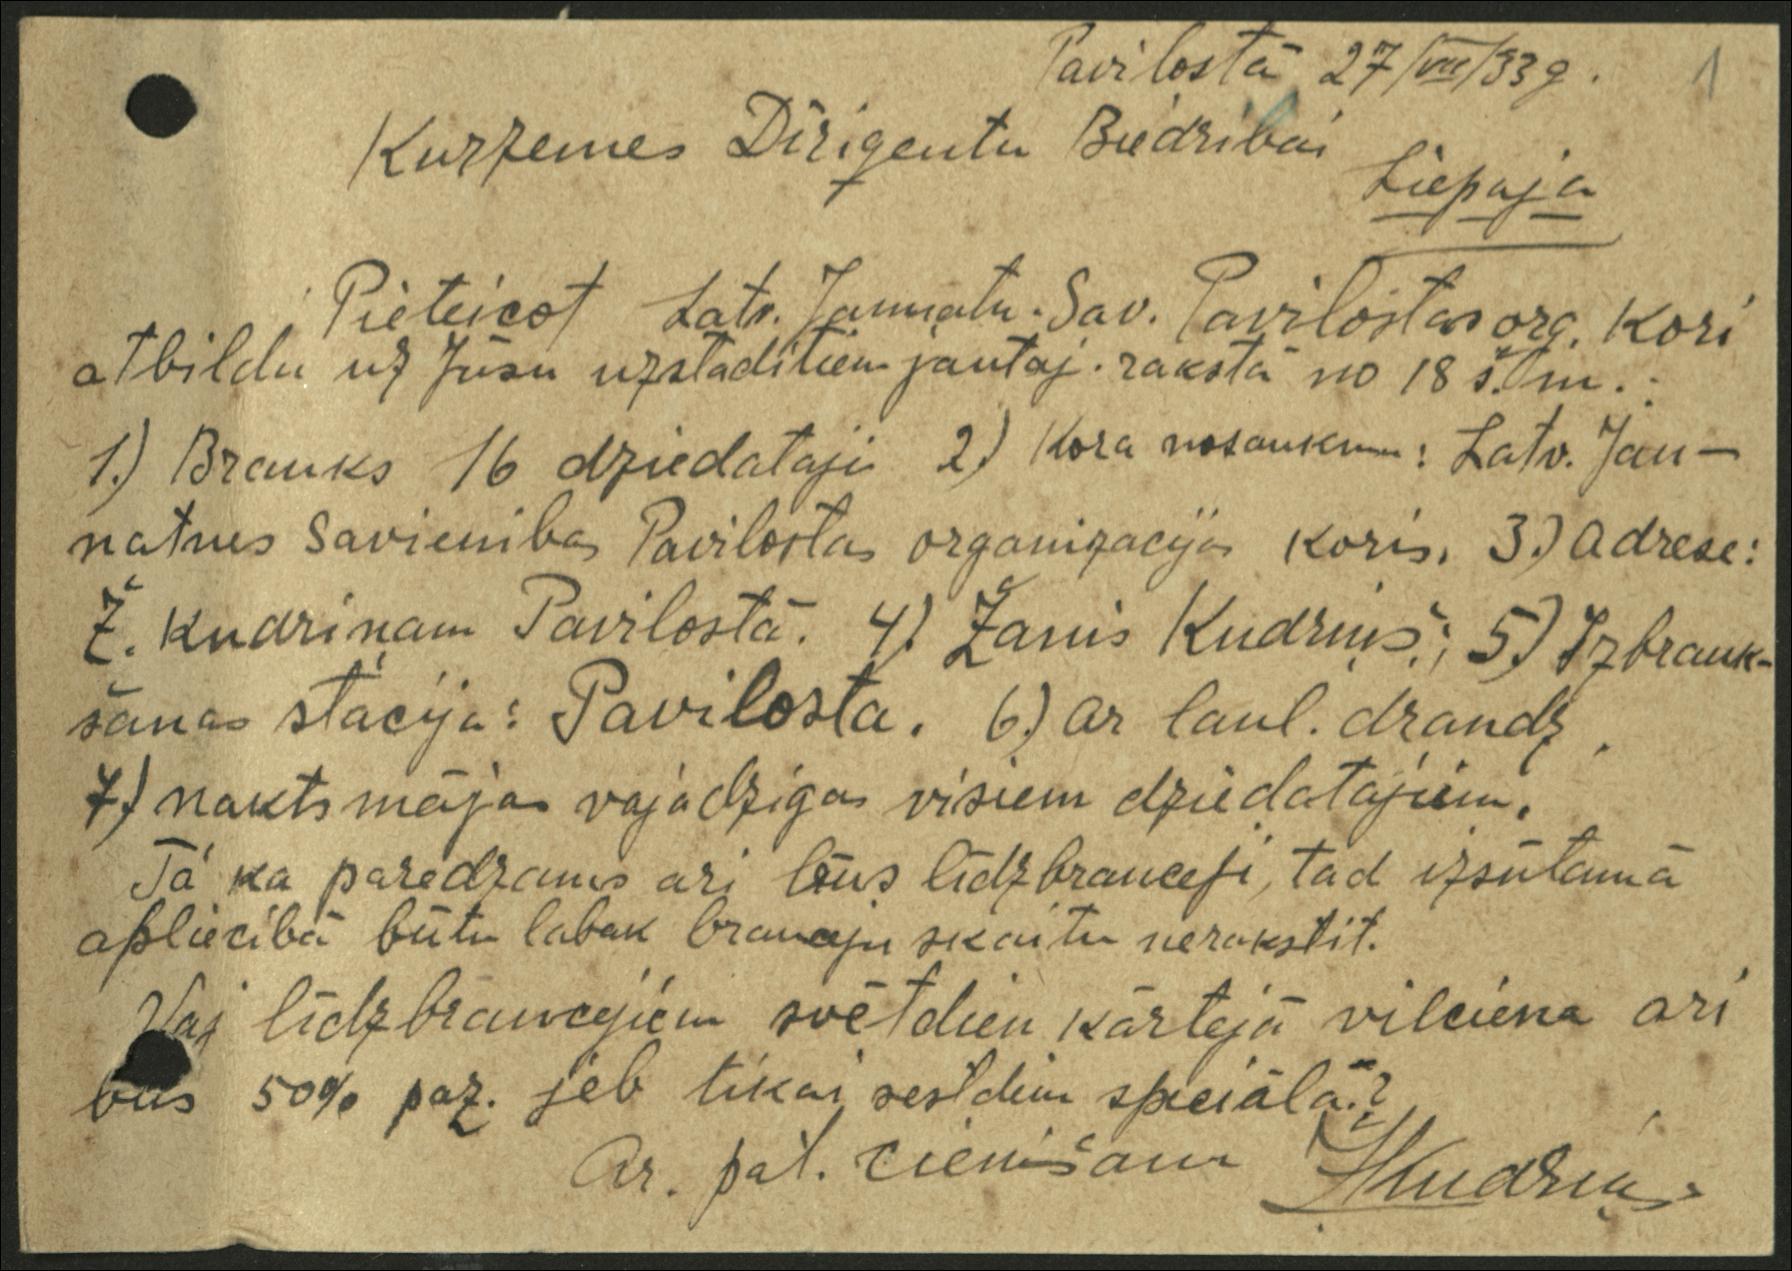 Pavilostā 27/VII/33 g. 1
Kurzemes Dirigentu Biedribai
Liepaja
Pieteicot Latv. Jaunatn. Sav. Pavilostas org. Kori
atbildu uz Jūsu uzstaditiem jautaj. rakstā no 18 š. m.:
1.) Brauks 16 dziedataji 2.) Kora nosaukums: Latv. Jau-
natnes Savienibas Pavilostas organizacijas koris. 3.) Adrese:
Ž. Kudriņam Pavilostā. 4.) Žanis Kudriņš; 5.) Izbrauk-
šanas stacija: Pavilosta. 6.) Ar laul. draudz.
7.) naktsmājas vajadzigas visiem dziedatajiem.
Tā ka paredzams ari būs līdzbrauceji, tad izsūtamā
apliecibā būtu labak brauceju skaitu nerakstit.
Vaj līdzbraucejiem svētdien kārtejā vilciena ari
būs 50% paz. jeb tikai sestdien speciālā?
Ar. pat. cienišanu ŽKudriņš